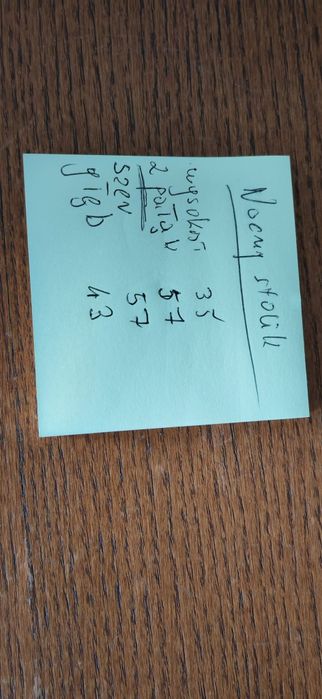 Nocny stolik
wysokość 35
2 półg k 57
szer 57
głęb 43